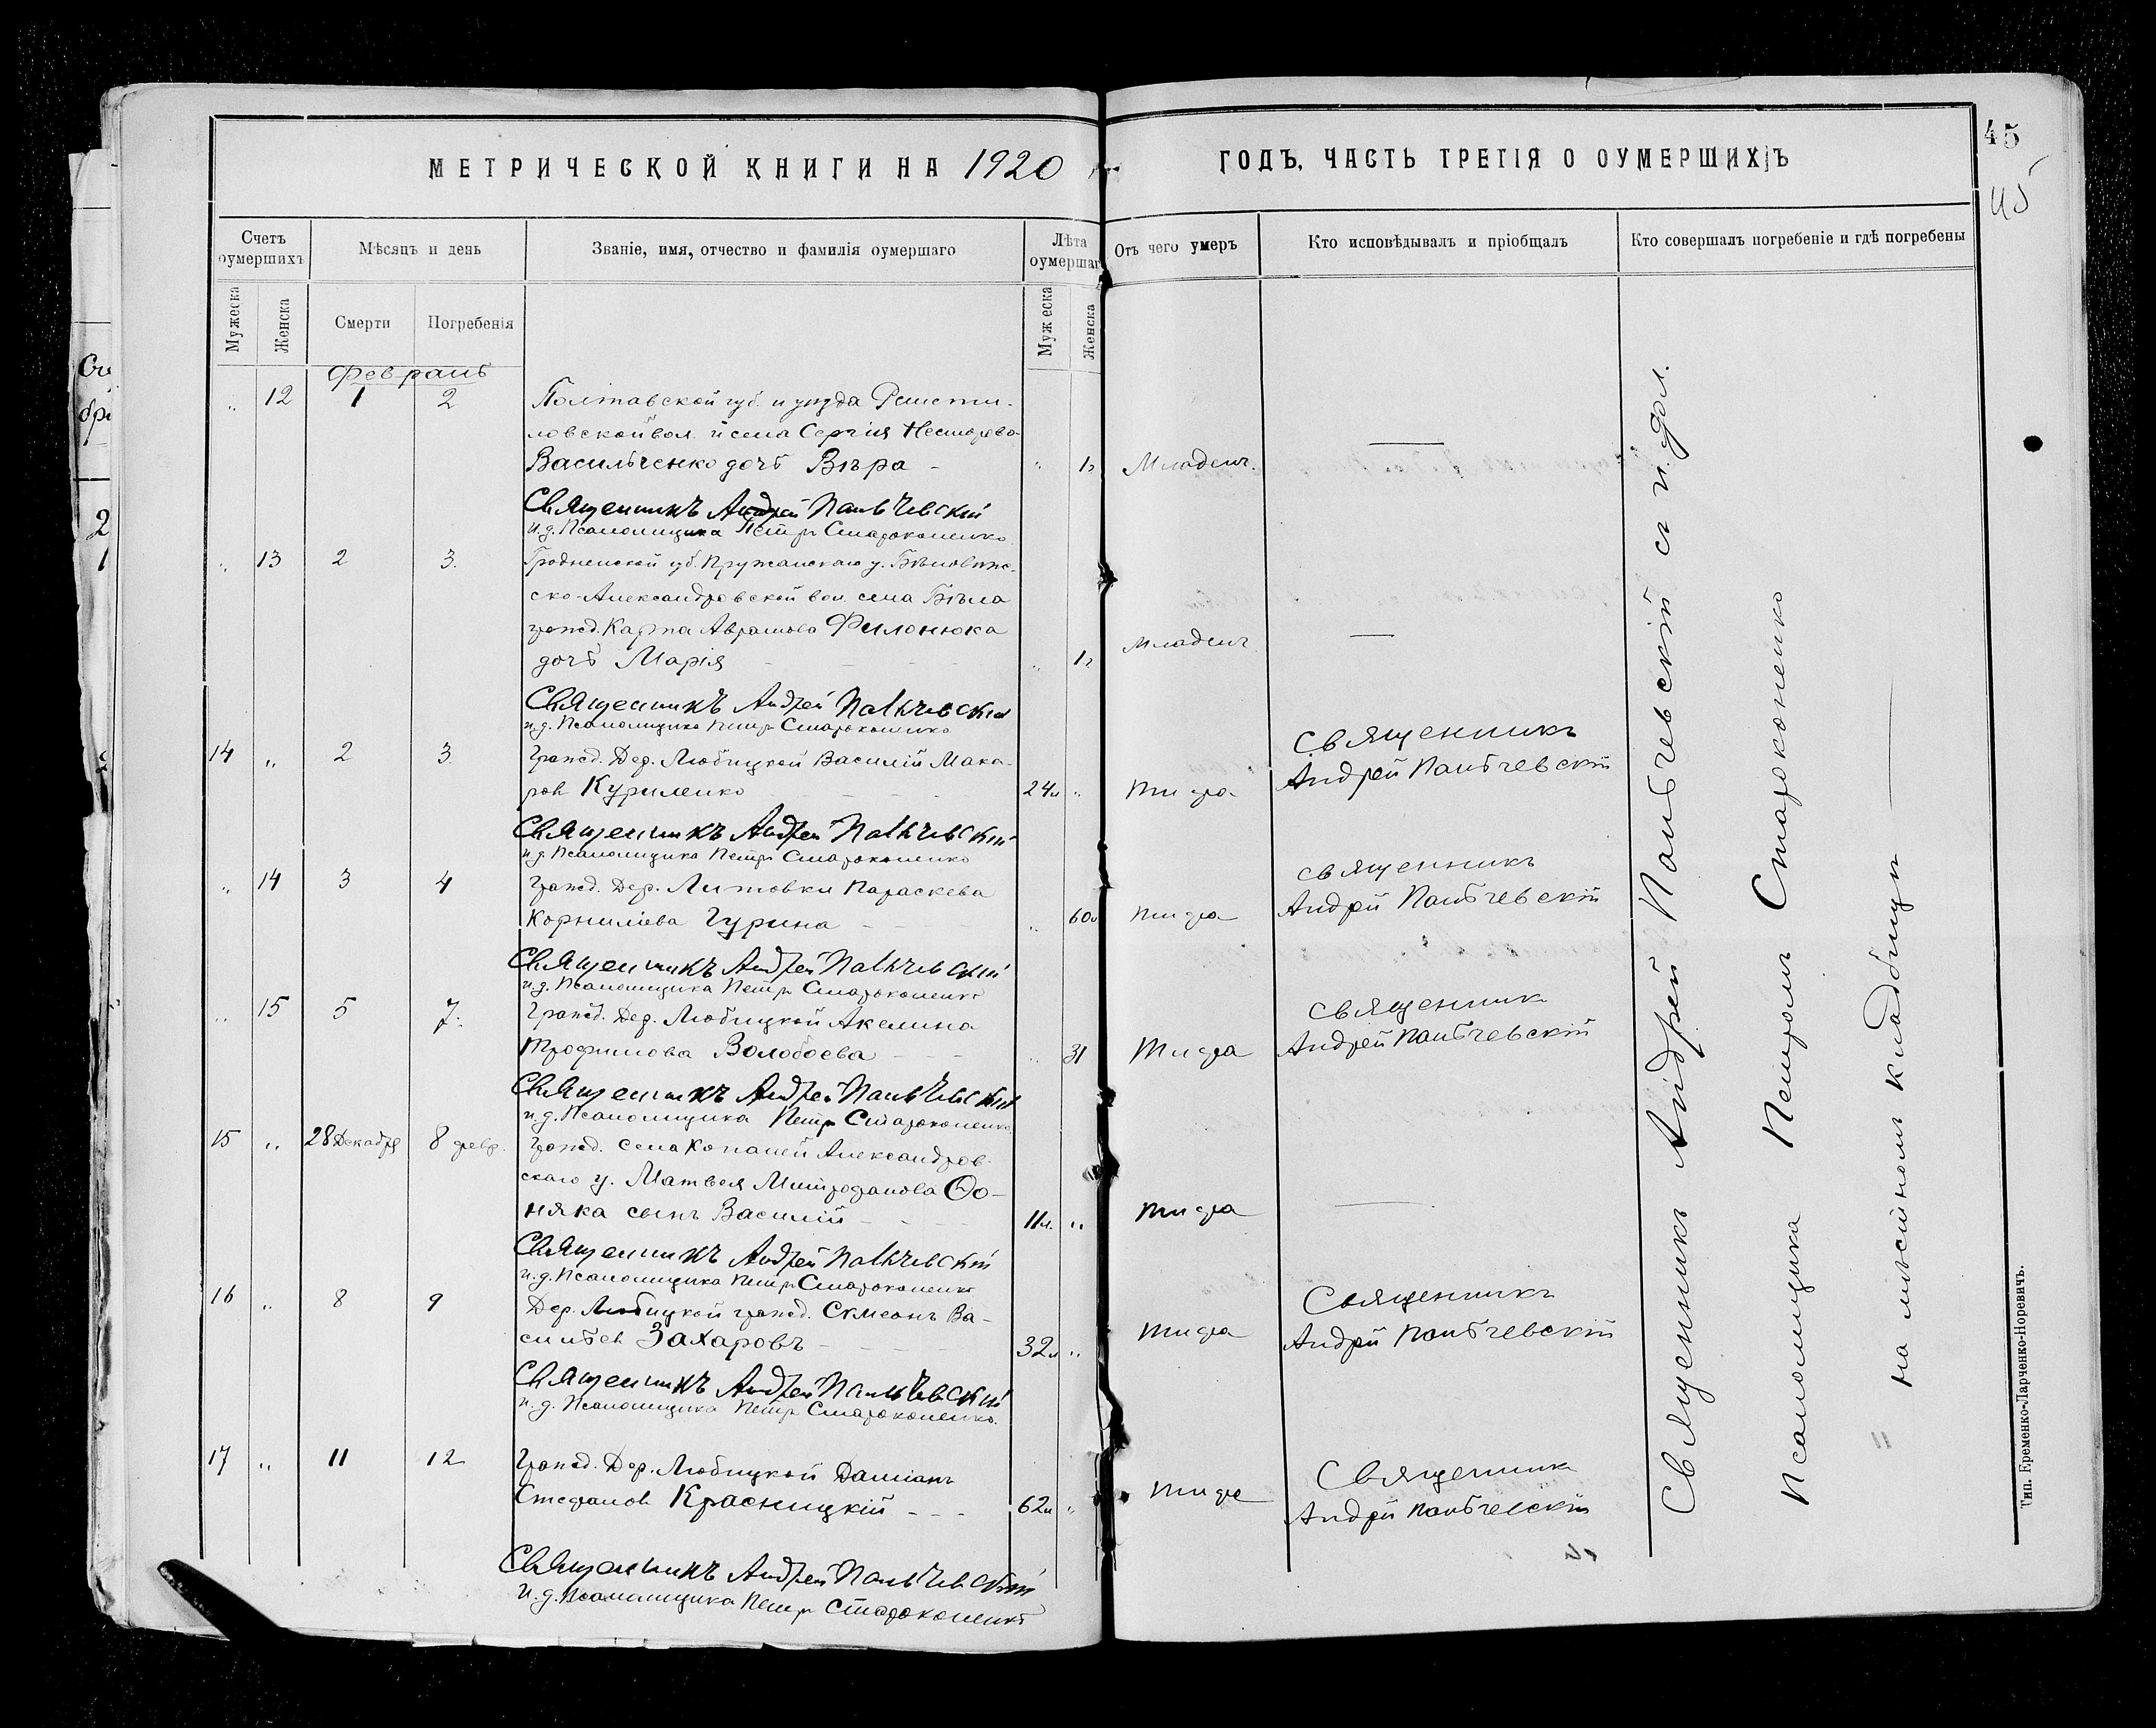 МЕТРИЧЕСКОЙ КНИГИ НА 1920
Счетъ оумершихъ
Мѣсяцъ и день
Званіе, имя, отчество и фамилія оумершаго
Лѣта оумершаг
Мужеска
Женска
Смерти
Погребенія
Мужеска
Женска
Февраль
„ 12 1 2 Полтавской губ. и уѣзда Решети-
ловской вол. и села Сергія Несторова
Васильченко дочь Вѣра - „ 1г
Священникъ Андрей Пальчевскій
и.д. Псаломщика Петръ Староконенко
„ 13 2 3. Гродненской губ. Пружанскаго у. Бѣловѣж-
ско-Александровской вол. села Бѣла
гражд. Карпа Аврамова Филонюка
дочь Марія - - - „ 1г
Священникъ Андрей Пальчевскій
и.д. Псаломщика Петръ Староконенко
14 „ 2 3 Гражд. Дер. Любицкой Василій Мака-
ровъ Куриленко - - - 24л „
Священникъ Андрей Пальчевскій
и.д. Псаломщика Петръ Староконенко
„ 14 3 4 Гражд. Дер. Литовки Параскева
Корниліева Гурина - - - „ 60л
Священникъ Андрей Пальчевскій
и.д. Псаломщика Петръ Староконенко
„ 15 5 7. Гражд. Дер. Любицкой Акелина
Трофимова Волобоева - - - „ 31
Священникъ Андрей Пальчевскій
и.д. Псаломщика Петръ Староконенко
15 „ 28 Декабря 8 февр. Гражд. села Копаней Александров-
скаго у. Матвея Митрофанова
няка сынъ Василій - - - 11л. „
Священникъ Андрей Пальчевскій
и.д. Псаломщика Петръ Староконенко
16 „ 8 9 Дер. Любицкой гражд. Симеонъ Ва-
сильев Захаровъ - - - 32л „
Священникъ Андрей Пальчевскій
и.д. Псаломщика Петръ Староконенко.
17 „ 11 12 Гражд. Дер. Любицкой Даміанъ
Стефановъ Красницкій - - - 62л „
Священникъ Андрей Пальчевскій
и.д. Псаломщика Петръ Староконенко
ГОДЪ, ЧАСТЬ ТРЕТІЯ О ОУМЕРШИХЪ
45
45
Отъ чего умеръ
Кто исповѣдывалъ и пріобщалъ
Кто совершалъ погребеніе и гдѣ погребены
Младенч.
Младенч.
Тифа
Священникъ
Андрей Пальчевскій
Тифа
Священникъ
Андрей Пальчевскій
Тифа
Священник
Андрей Пальчевскій
Тифа
Тифа
Священникъ
Андрей Пальчевскій
Тифа
Священник
Андрей Пальчевскій
Священникъ Андрей Пальчевскій съ и. дол.
Псаломщика Петромъ Староконенко
на мѣстномъ кладбищѣ
Тип. Еременко-Ларченко-Норевичъ.